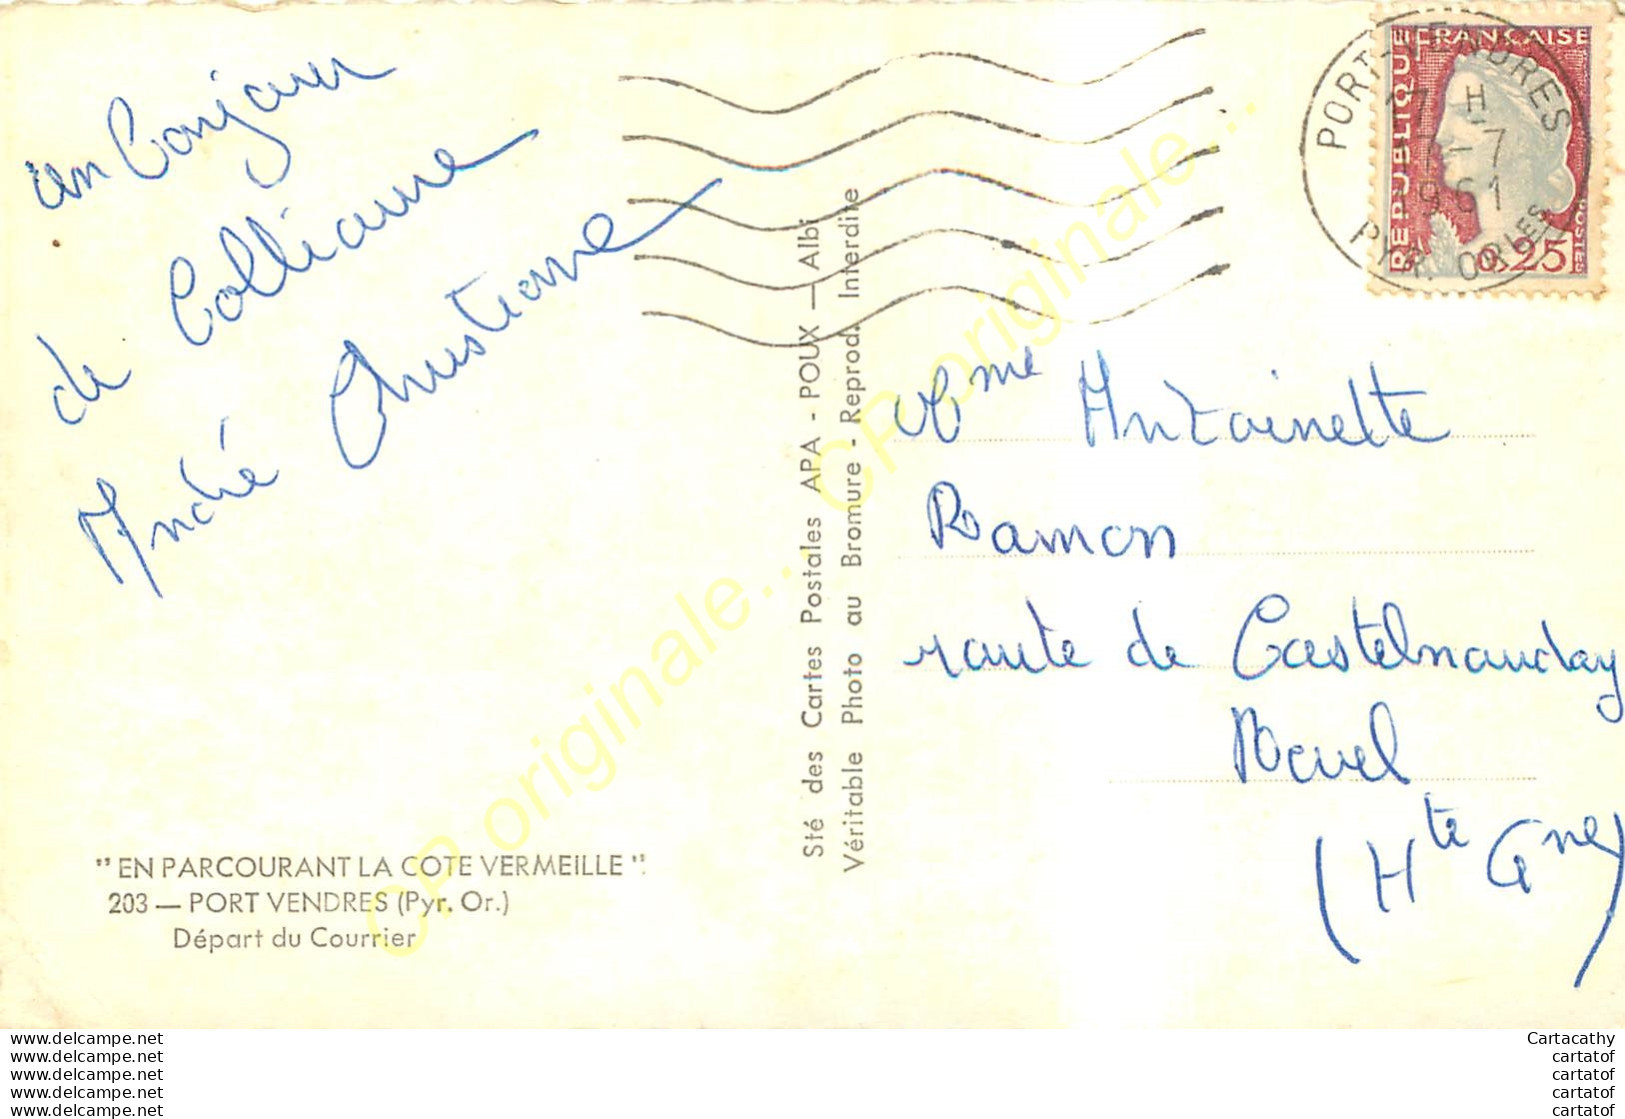 un bonjour
de Collioure
André Christiane
"EN PARCOURANT LA COTE VERMEILLE"
203 — PORT VENDRES (Pyr. Or.)
Départ du Courrier
Sté des Cartes Postales APA - POUX — Albi
Véritable Photo au Bromure - Reprod. Interdite
CP originale... CP originale...
PORT-VENDRES
17 H
-7
1961
PYR. ORLES
REPUBLIQUE FRANÇAISE
0,25
POSTES
Mme Antoinette
Ramon
route de Castelnauday
Revel
(Hte Gne)
www.delcampe.net
www.delcampe.net
www.delcampe.net
www.delcampe.net
www.delcampe.net
Cartacathy
cartatof
cartatof
cartatof
cartatof